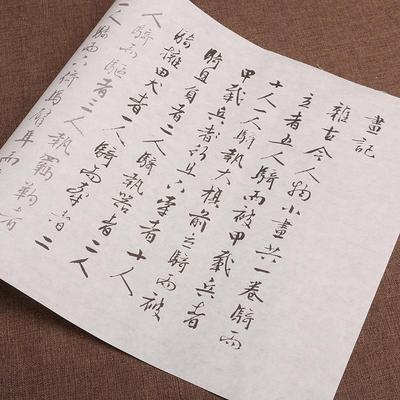 畫記
雜古今人物小畫共一卷騎而
立者五人騎而被甲載兵者
十人一人騎執大旗前立騎而被
甲載兵者行且下牽者十人
騎且負者二人騎執器者三人
騎擁田犬者二人騎而牽者二
人騎而驅者三人執羈靮者
二人騎而下倚馬臂隼而